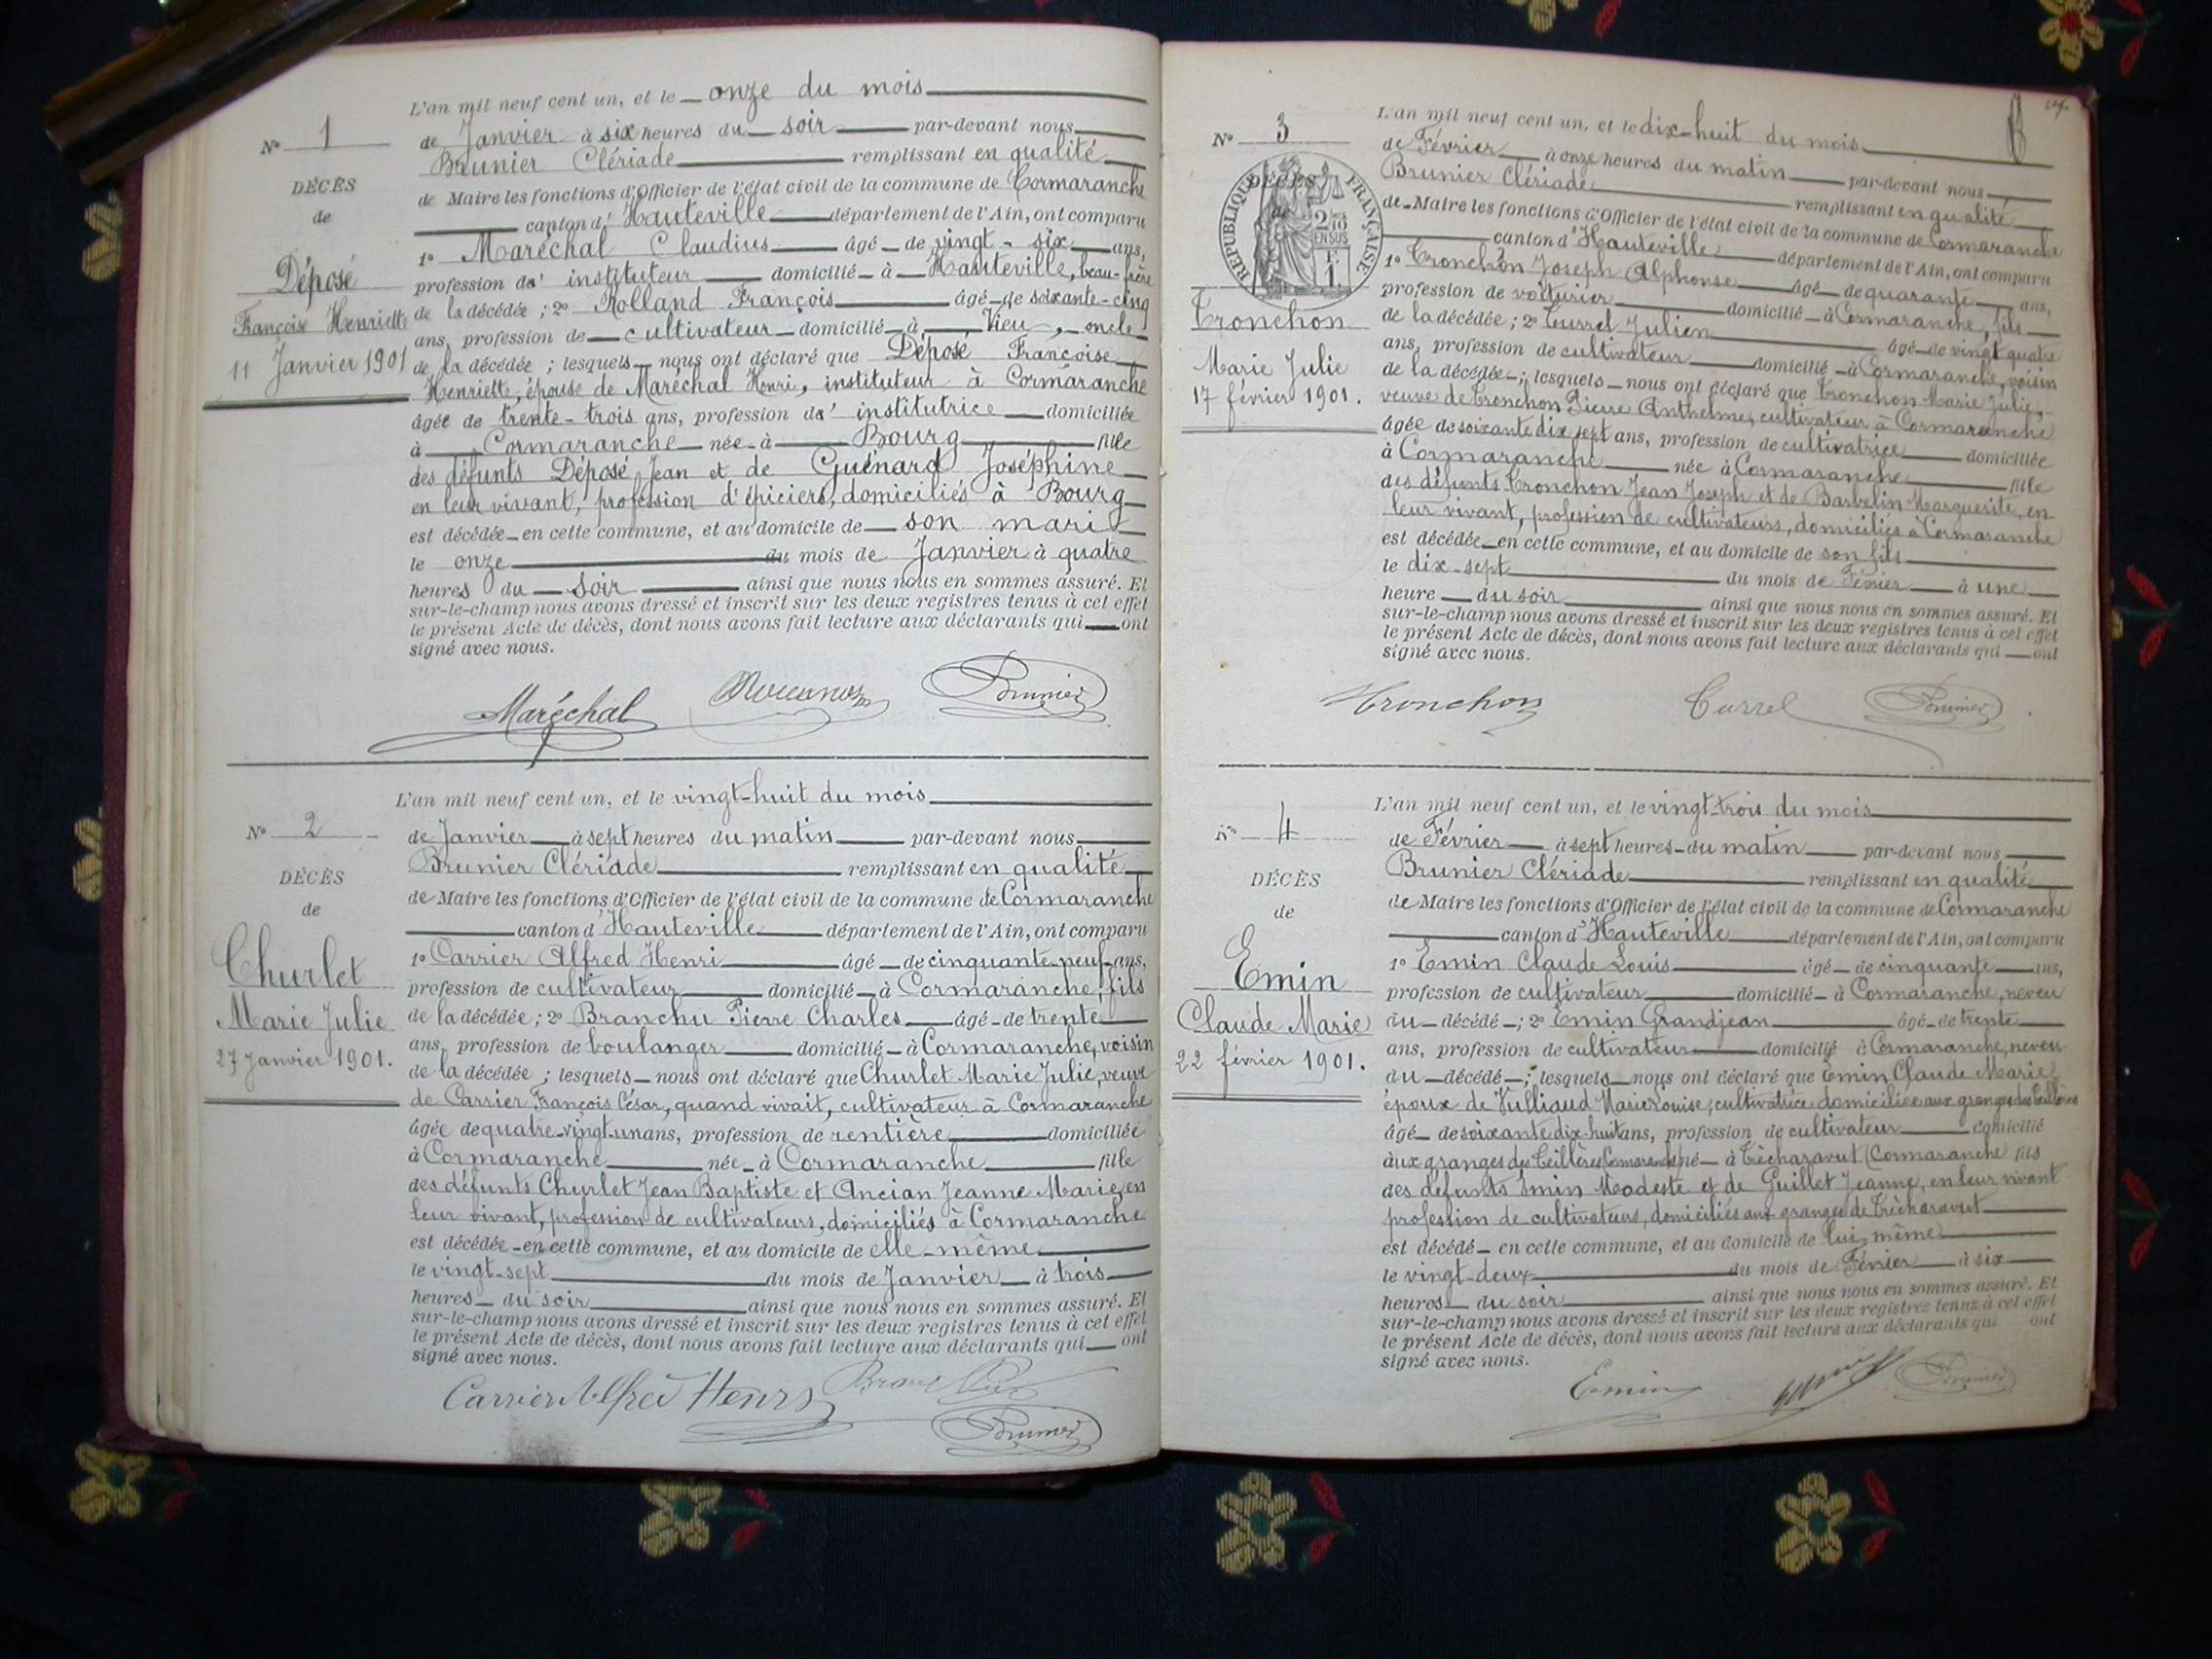 L'an mil neuf cent un, et le onze du mois
N° 1 de Janvier à six heures du soir par-devant nous
Brunier Clériade remplissant en qualité
DÉCÈS de Maire les fonctions d'Officier de l'état civil de la commune de Cormaranche
de canton d'Hauteville département de l'Ain, ont comparu
1° Maréchal Claudius âgé de vingt-six ans,
Déposé profession d'instituteur domicilié à Hauteville, beau-frère
Françoise Henriette de la décédée; 2° Rolland François âgé de soixante-cinq
11 Janvier 1901 ans, profession de cultivateur domicilié à Vieu, oncle
de la décédée; lesquels nous ont déclaré que Déposé Françoise
Henriette, épouse de Maréchal Henri, instituteur à Cormaranche
âgée de trente-trois ans, profession d'institutrice domiciliée
à Cormaranche née à Bourg fille
des défunts Déposé Jean et de Guénard Joséphine
en leur vivant, profession d'épiciers, domiciliés à Bourg
est décédée en cette commune, et au domicile de son mari
le onze du mois de Janvier à quatre
heures du soir ainsi que nous nous en sommes assuré. Et
sur-le-champ nous avons dressé et inscrit sur les deux registres tenus à cet effet
le présent Acte de décès, dont nous avons fait lecture aux déclarants qui ont
signé avec nous.
Maréchal Brunier
L'an mil neuf cent un, et le vingt-huit du mois
N° 2 de Janvier à sept heures du matin par-devant nous
Brunier Clériade remplissant en qualité
DÉCÈS de Maire les fonctions d'Officier de l'état civil de la commune de Cormaranche
de canton d'Hauteville département de l'Ain, ont comparu
Churlet 1° Carrier Alfred Henri âgé de cinquante-neuf ans,
profession de cultivateur domicilié à Cormaranche, fils
Marie Julie de la décédée; 2° Branchu Pierre Charles âgé de trente
27 Janvier 1901. ans, profession de boulanger domicilié à Cormaranche, voisin
de la décédée; lesquels nous ont déclaré que Churlet Marie Julie, veuve
de Carrier François César, quand vivait, cultivateur à Cormaranche
âgée de quatre-vingt-un ans, profession de rentière domiciliée
à Cormaranche née à Cormaranche fille
des défunts Churlet Jean Baptiste et Ancian Jeanne Marie, en
leur vivant, profession de cultivateurs, domiciliés à Cormaranche
est décédée en cette commune, et au domicile de elle-même
le vingt-sept du mois de Janvier à trois
heures du soir ainsi que nous nous en sommes assuré. Et
sur-le-champ nous avons dressé et inscrit sur les deux registres tenus à cet effet
le présent Acte de décès, dont nous avons fait lecture aux déclarants qui ont
signé avec nous.
Carrier Alfred Henri
Brunier
L'an mil neuf cent un, et le dix-huit du mois
N° 3 de Février à onze heures du matin par-devant nous
Brunier Clériade remplissant en qualité
DÉCÈS de Maire les fonctions d'Officier de l'état civil de la commune de Cormaranche
RÉPUBLIQUE FRANÇAISE
EN SUS
canton d'Hauteville département de l'Ain, ont comparu
1° Tronchon Joseph Alphonse âgé de quarante ans,
profession de voiturier domicilié à Cormaranche, fils
Tronchon de la décédée; 2° Turrel Julien âgé de vingt quatre
ans, profession de cultivateur domicilié à Cormaranche, voisin
Marie Julie de la décédée; lesquels nous ont déclaré que Tronchon Marie Julie,
17 février 1901. veuve de Tronchon Pierre Anthelme, cultivateur à Cormaranche
âgée de soixante dix sept ans, profession de cultivatrice domiciliée
à Cormaranche née à Cormaranche fille
des défunts Tronchon Jean Joseph et de Barbelin Marguerite, en
leur vivant, profession de cultivateurs, domiciliés à Cormaranche
est décédée en cette commune, et au domicile de son fils
le dix-sept du mois de Février à une
heure du soir ainsi que nous nous en sommes assuré. Et
sur-le-champ nous avons dressé et inscrit sur les deux registres tenus à cet effet
le présent Acte de décès, dont nous avons fait lecture aux déclarants qui ont
signé avec nous.
Tronchon Turrel Brunier
L'an mil neuf cent un, et le vingt-trois du mois
N° 4 de Février à sept heures du matin par-devant nous
Brunier Clériade remplissant en qualité
DÉCÈS de Maire les fonctions d'Officier de l'état civil de la commune de Cormaranche
de canton d'Hauteville département de l'Ain, ont comparu
1° Emin Claude Louis âgé de cinquante ans,
Emin profession de cultivateur domicilié à Cormaranche, neveu
Claude Marie du décédé; 2° Emin Grandjean âgé de trente
22 février 1901. ans, profession de cultivateur domicilié à Cormaranche, neveu
du décédé; lesquels nous ont déclaré que Emin Claude Marie
époux de Vulliaud Marie Louise, cultivatrice domiciliée aux granges des
âgé de soixante dix-huit ans, profession de cultivateur domicilié
aux granges des Teillères Cormaranche né à Trècharavut (Cormaranche) fils
des défunts Emin Modeste et de Guillet Jeanne, en leur vivant
profession de cultivateurs, domiciliés aux granges de Trècharavut
est décédé en cette commune, et au domicile de lui même
le vingt-deux du mois de Février à six
heures du soir ainsi que nous nous en sommes assuré. Et
sur-le-champ nous avons dressé et inscrit sur les deux registres tenus à cet effet
le présent Acte de décès, dont nous avons fait lecture aux déclarants qui ont
signé avec nous.
Emin Brunier